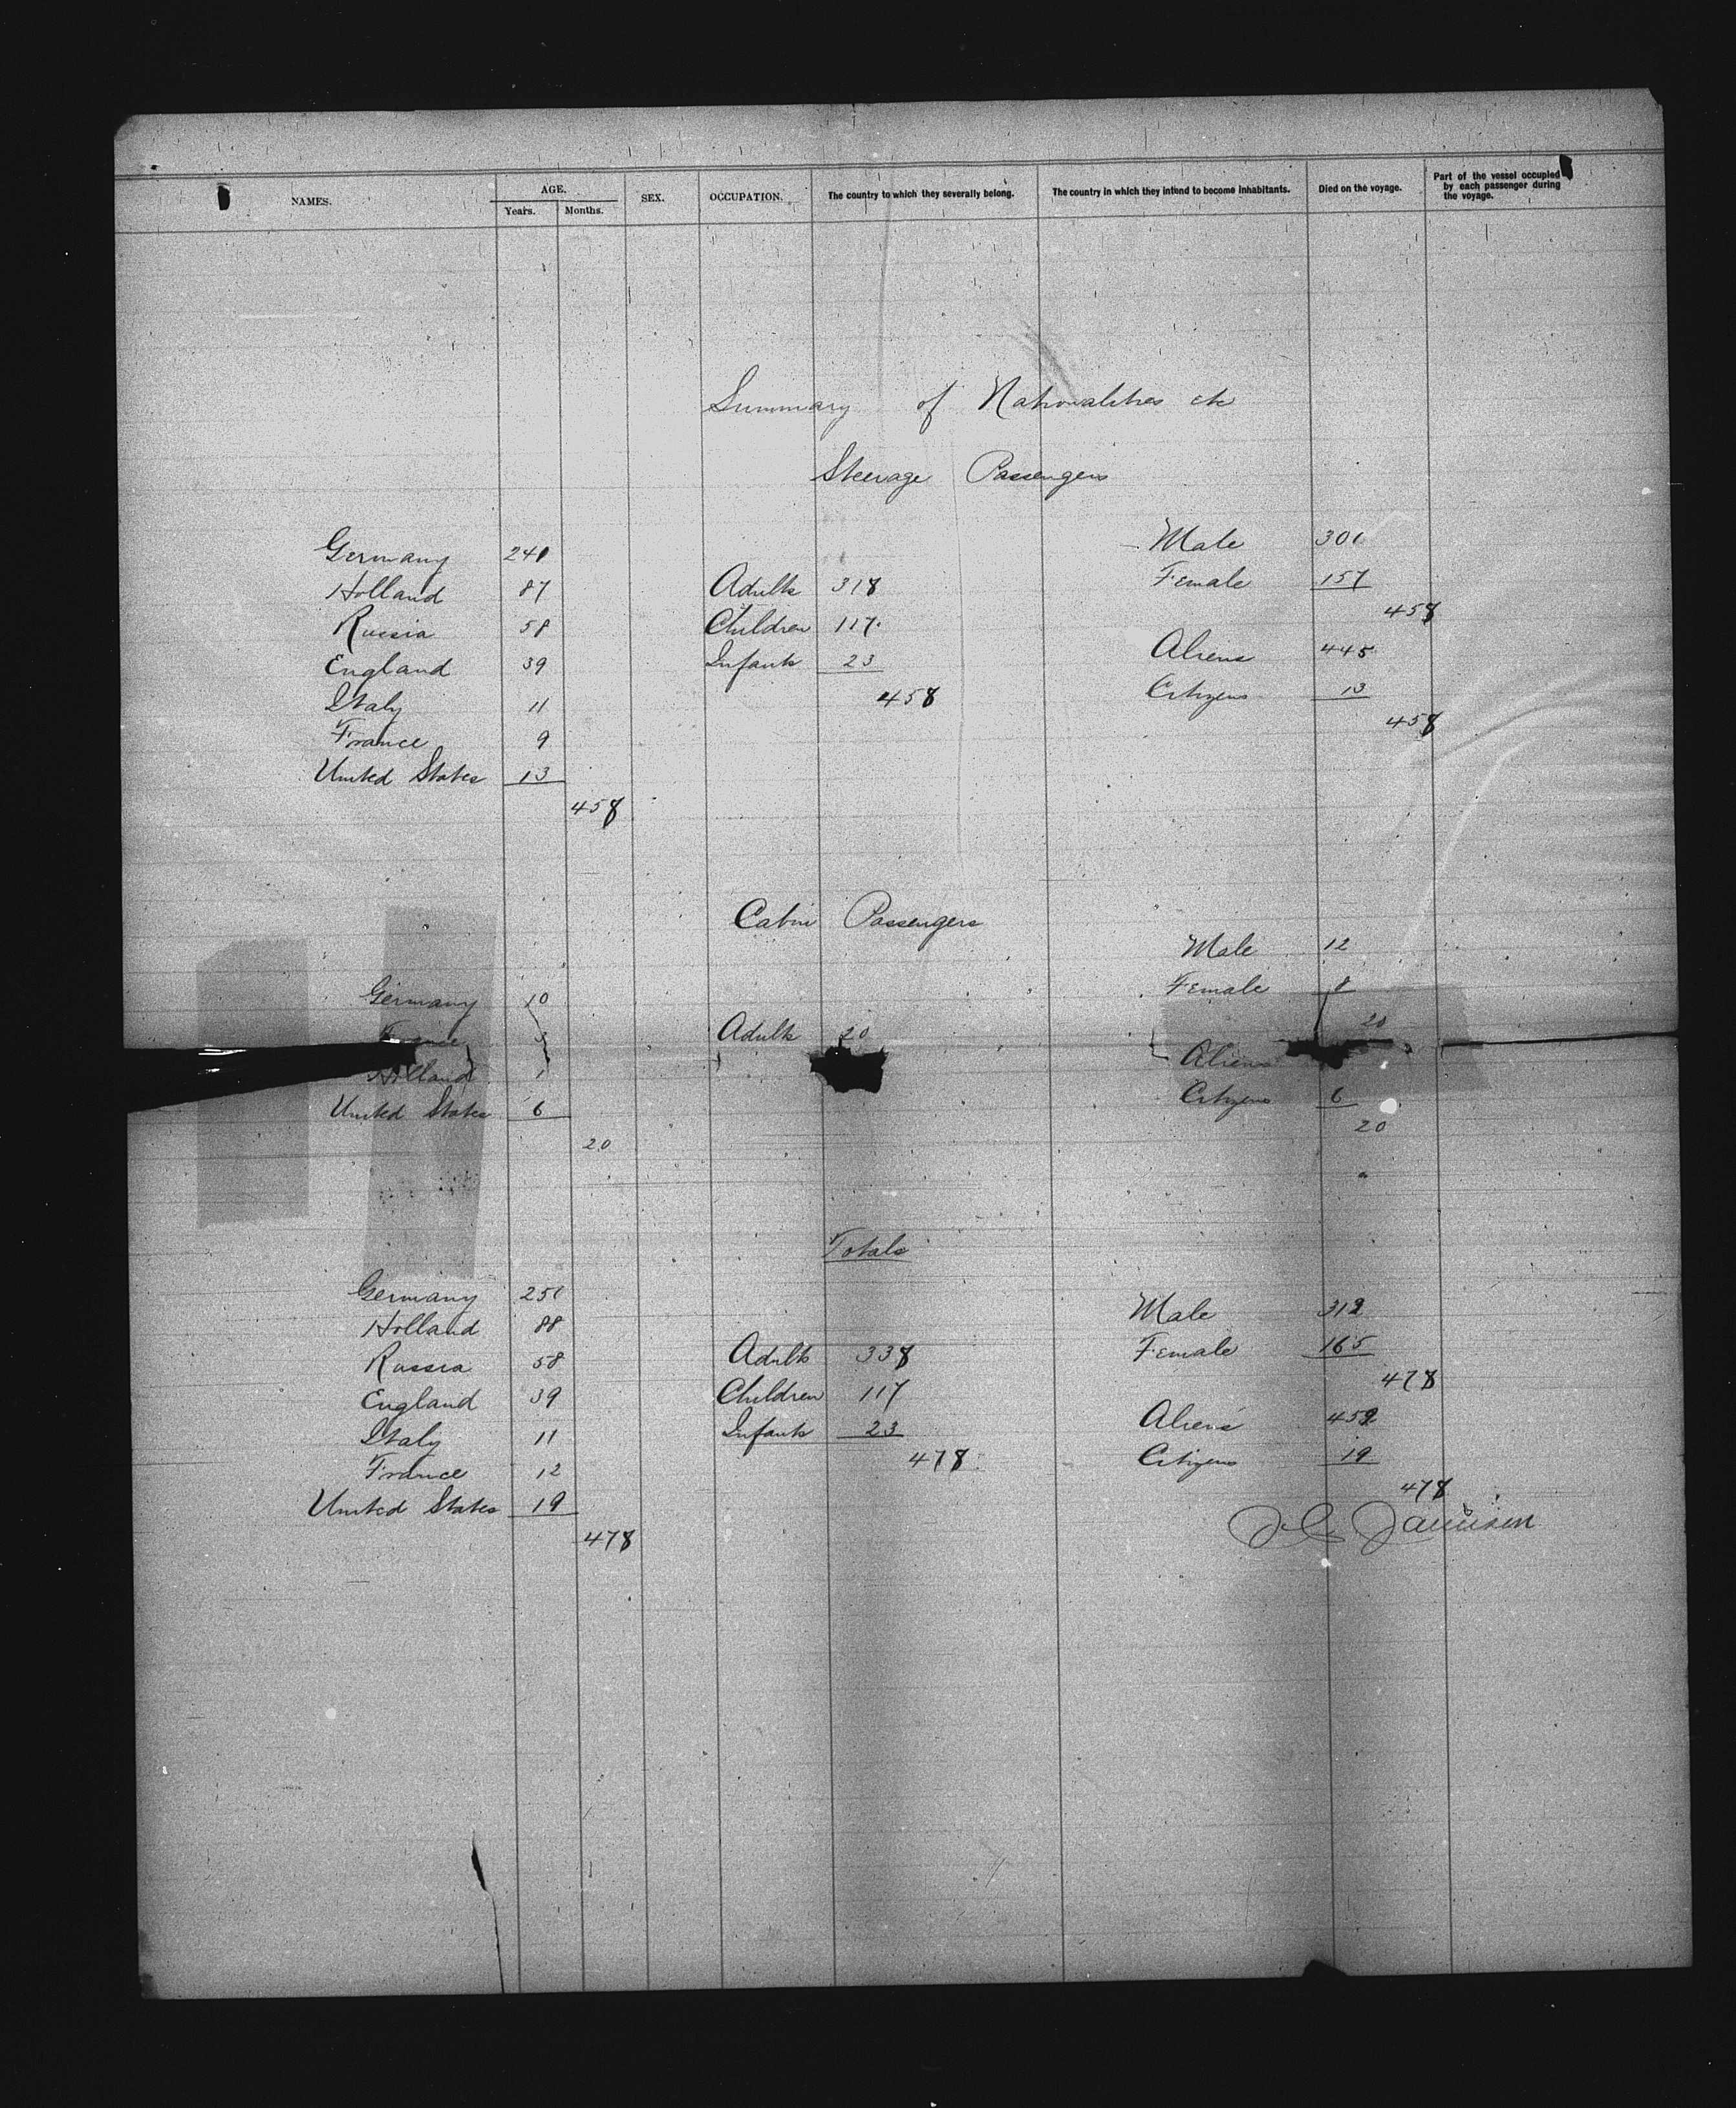 NAMES.
AGE.
Years.
Months.
SEX.
OCCUPATION.
The country to which they severally belong.
The country in which they intend to become inhabitants.
Died on the voyage.
Part of the vessel occupied
by each passenger during
the voyage.
Summary of Nationalities etc
Steerage Passengers
Germany 241
Holland 87
Russia 58
England 39
Italy 11
France 9
United States 13
458
Adults 318
Children 117
Infants 23
458
Male 301
Female 157
458
Aliens 445
Citizens 13
458
Cabin Passengers
Germany 10
France 3
Holland 1
United States 6
20
Adults 20
Male 12
Female 8
20
Aliens
Citizens 6
20
Totals
Germany 251
Holland 88
Russia 58
England 39
Italy 11
France 12
United States 19
478
Adults 338
Children 117
Infants 23
478
Male 313
Female 165
478
Aliens 459
Citizens 19
478